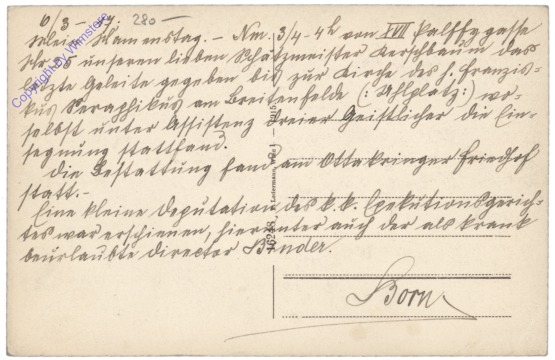 6/3 - 17. 280 —
Mein Namenstag. - Nm. 3/4 - 4h von XVII Palffygasse
Nr. 25 unseren lieben Schatzmeister Kerschbaum das
letzte Geleite gegeben bis zur Kirche des h. Franzis-
kus Seraphikus am Breitenfelde (: Uhlplatz :) wo-
selbst unter Assistenz dreier Geistlicher die Ein-
segnung stattfand.
Die Bestattung fand am Ottakringer Friedhof
statt. -
Eine kleine Deputation des k. k. Exekutionsgerich-
tes war erschienen, hierunter auch der als krank
beurlaubte Director Binder.
Born
Copyright by Wienstere
16248. Ledermann, Wien I